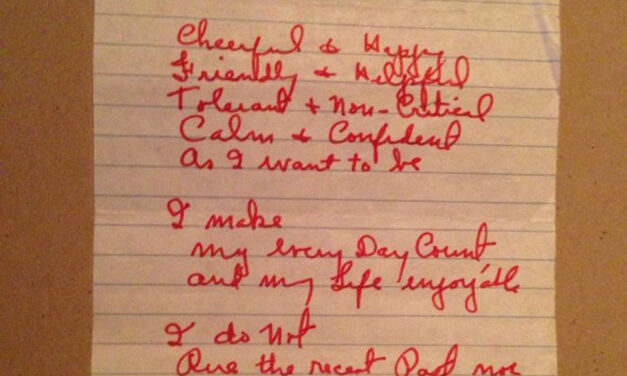 Cheerful & Happy
Friendly & Helpful
Tolerant + Non-Critical
Calm & Confident
As I want to be
I make
my every Day Count
and my Life enjoyable
I do Not
Rue the recent Past nor